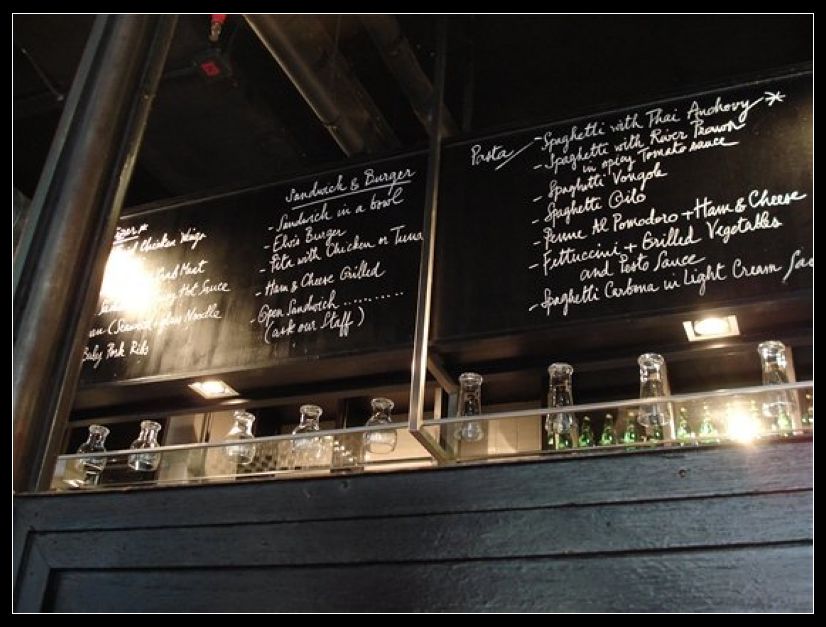 Chicken Wings
Crab Meat
Hot Sauce
Noodle
Baby Pork Ribs
Sandwich & Burger
- Sandwich in a bowl
- Elvis Burger
- Pita with Chicken or Tuna
- Ham & Cheese Grilled
- Open Sandwich ..........
(ask our Staff)
Pasta
- Spaghetti with Thai Anchovy *
- Spaghetti with River Prawn
in spicy Tomato sauce
- Spaghetti Vongole
- Spaghetti Oilo
- Penne Al Pomodoro + Ham & Cheese
- Fettuccini + Grilled Vegetables
and Pesto Sauce
- Spaghetti Carbona in Light Cream